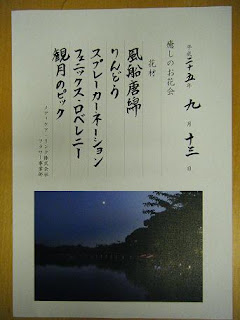 平成二十五年 九月 十三日
癒しのお花会
花材
風船唐綿
りんどう
スプレーカーネーション
フェニックス・ロベレニー
観月のピック
メディケア・リンク株式会社